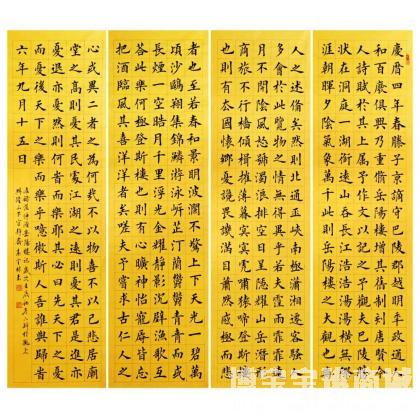 慶曆四年春滕子京謫守巴陵郡越明年政通人
和百廢俱興乃重修岳陽樓增其舊制刻唐賢今
人詩賦於其上屬予作文以記之予觀夫巴陵勝
狀在洞庭一湖銜遠山吞長江浩浩湯湯橫無際
涯朝暉夕陰氣象萬千此則岳陽樓之大觀也前
人之述備矣然則北通巫峽南極瀟湘遷客騷人
多會於此覽物之情得無異乎若夫霪雨霏霏連
月不開陰風怒號濁浪排空日星隱耀山岳潛形
商旅不行檣傾楫摧薄暮冥冥虎嘯猿啼登斯樓
也則有去國懷鄉憂讒畏譏滿目蕭然感極而悲
者也至若春和景明波瀾不驚上下天光一碧萬
頃沙鷗翔集錦鱗游泳岸芷汀蘭鬱鬱青青而或
長煙一空皓月千里浮光耀金靜影沉璧漁歌互
答此樂何極登斯樓也則有心曠神怡寵辱皆忘
把酒臨風其喜洋洋者矣嗟夫予嘗求古仁人之
心或異二者之為何哉不以物喜不以己悲居廟
堂之高則憂其民處江湖之遠則憂其君是進亦
憂退亦憂然則何時而樂耶其必曰先天下之憂
而憂後天下之樂而樂乎噫微斯人吾誰與歸時
六年九月十五日